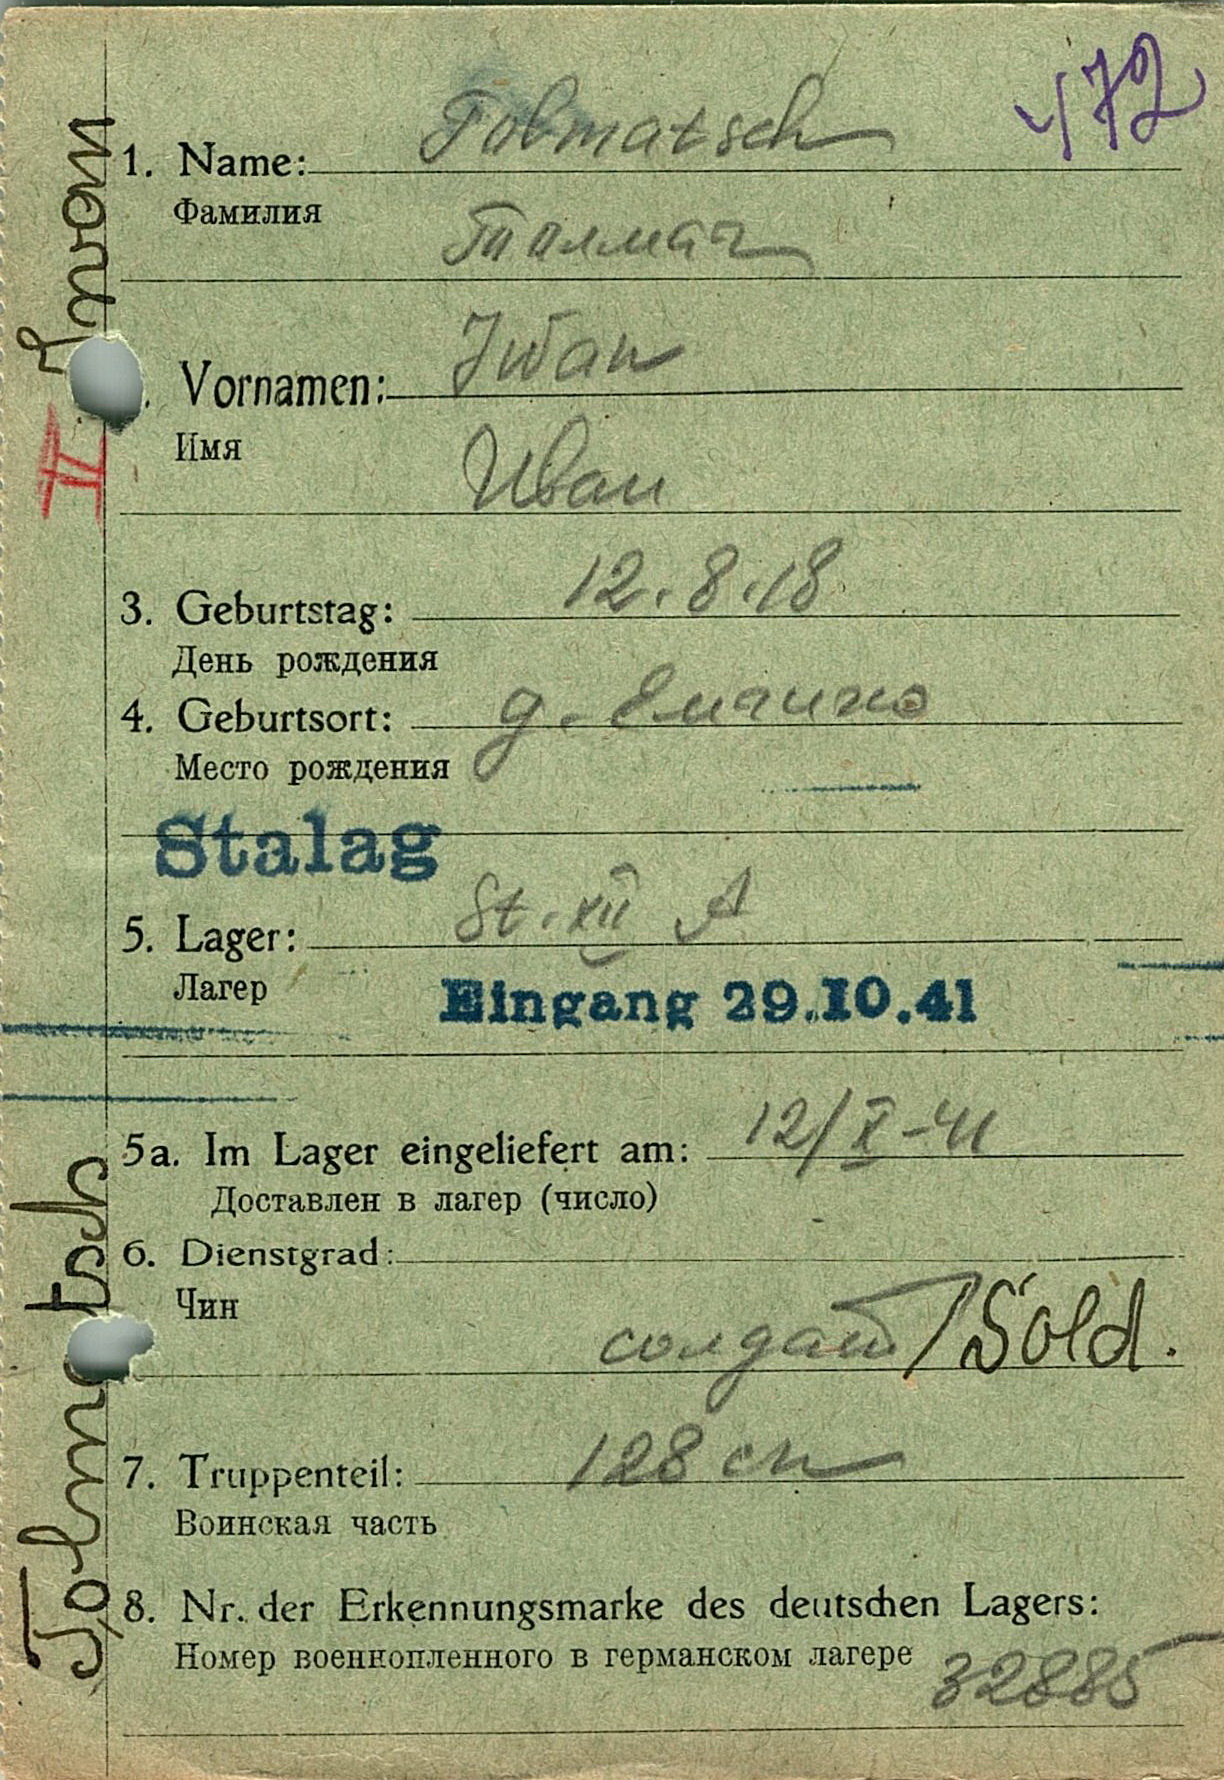 472
1. Name: Tolmatsch
Фамилия
Толмач
Vornamen: Iwan
Имя
Иван
3. Geburtstag: 12.8.18
День рождения
4. Geburtsort: д.
Место рождения
Stalag
5. Lager: St. XII A
Лагер
Eingang 29.10.41
5a. Im Lager eingeliefert am: 12/X-41
Доставлен в лагер (число)
6. Dienstgrad:
Чин
солдат / Sold.
7. Truppenteil: 128 сп
Воинская часть
8. Nr. der Erkennungsmarke des deutschen Lagers:
Номер военнопленного в германском лагере 32885
Tolmatsch Iwan
II